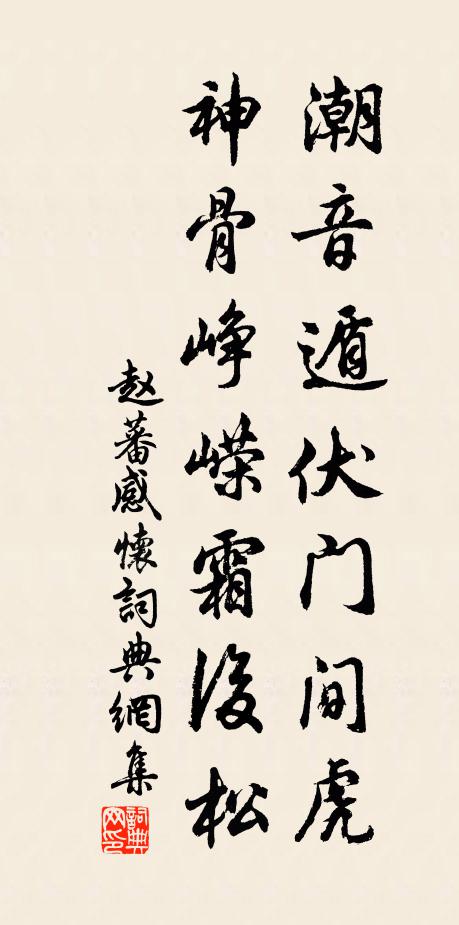 潮音遁伏门间虎
神骨峥嵘霜後松
赵蕃感懷詞典網集
詞典网印